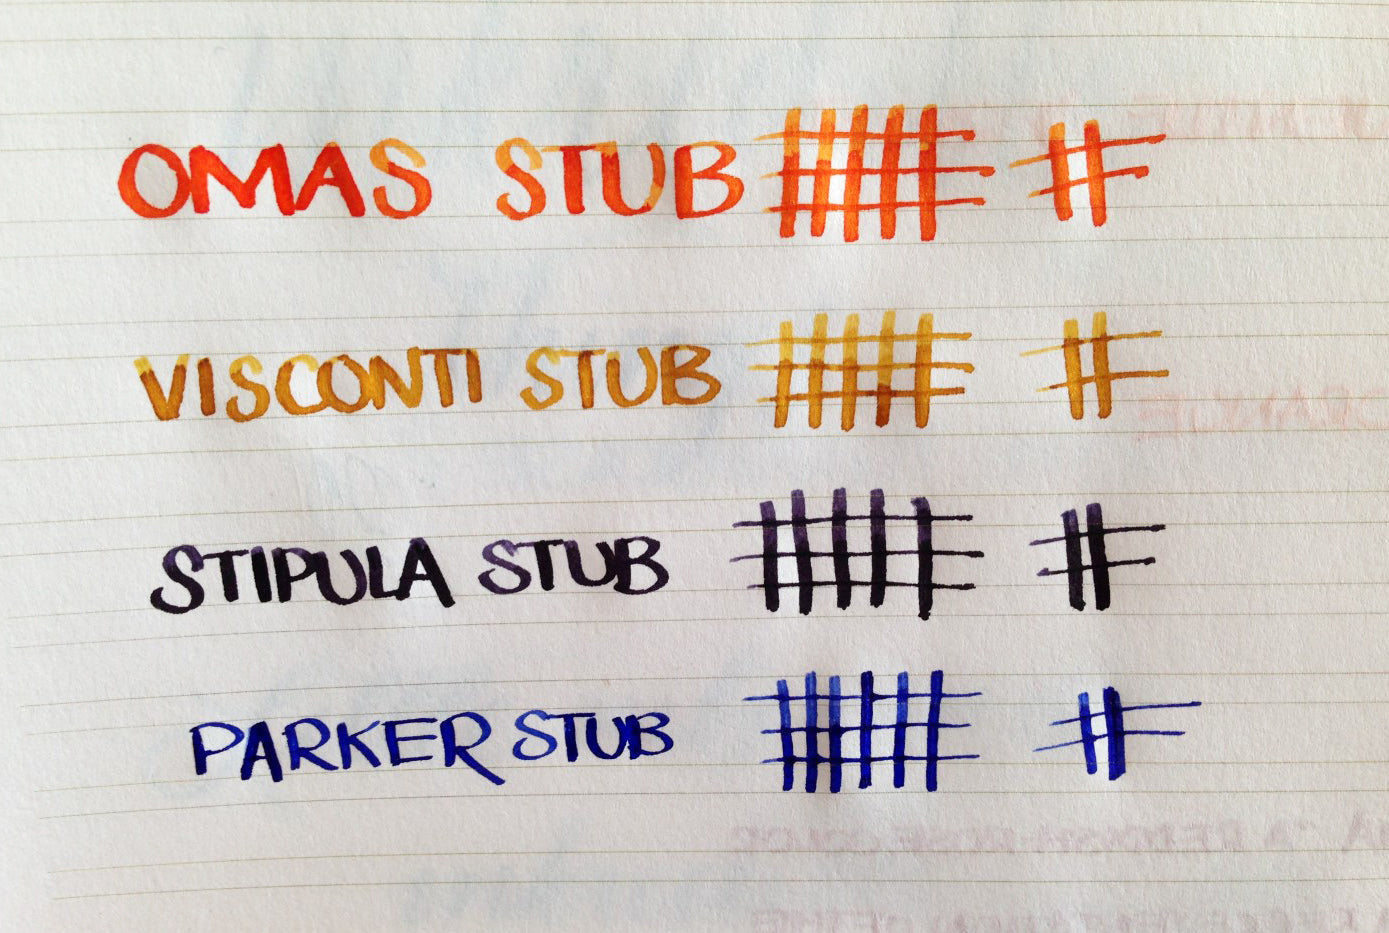 OMAS STUB
VISCONTI STUB
STIPULA STUB
PARKER STUB